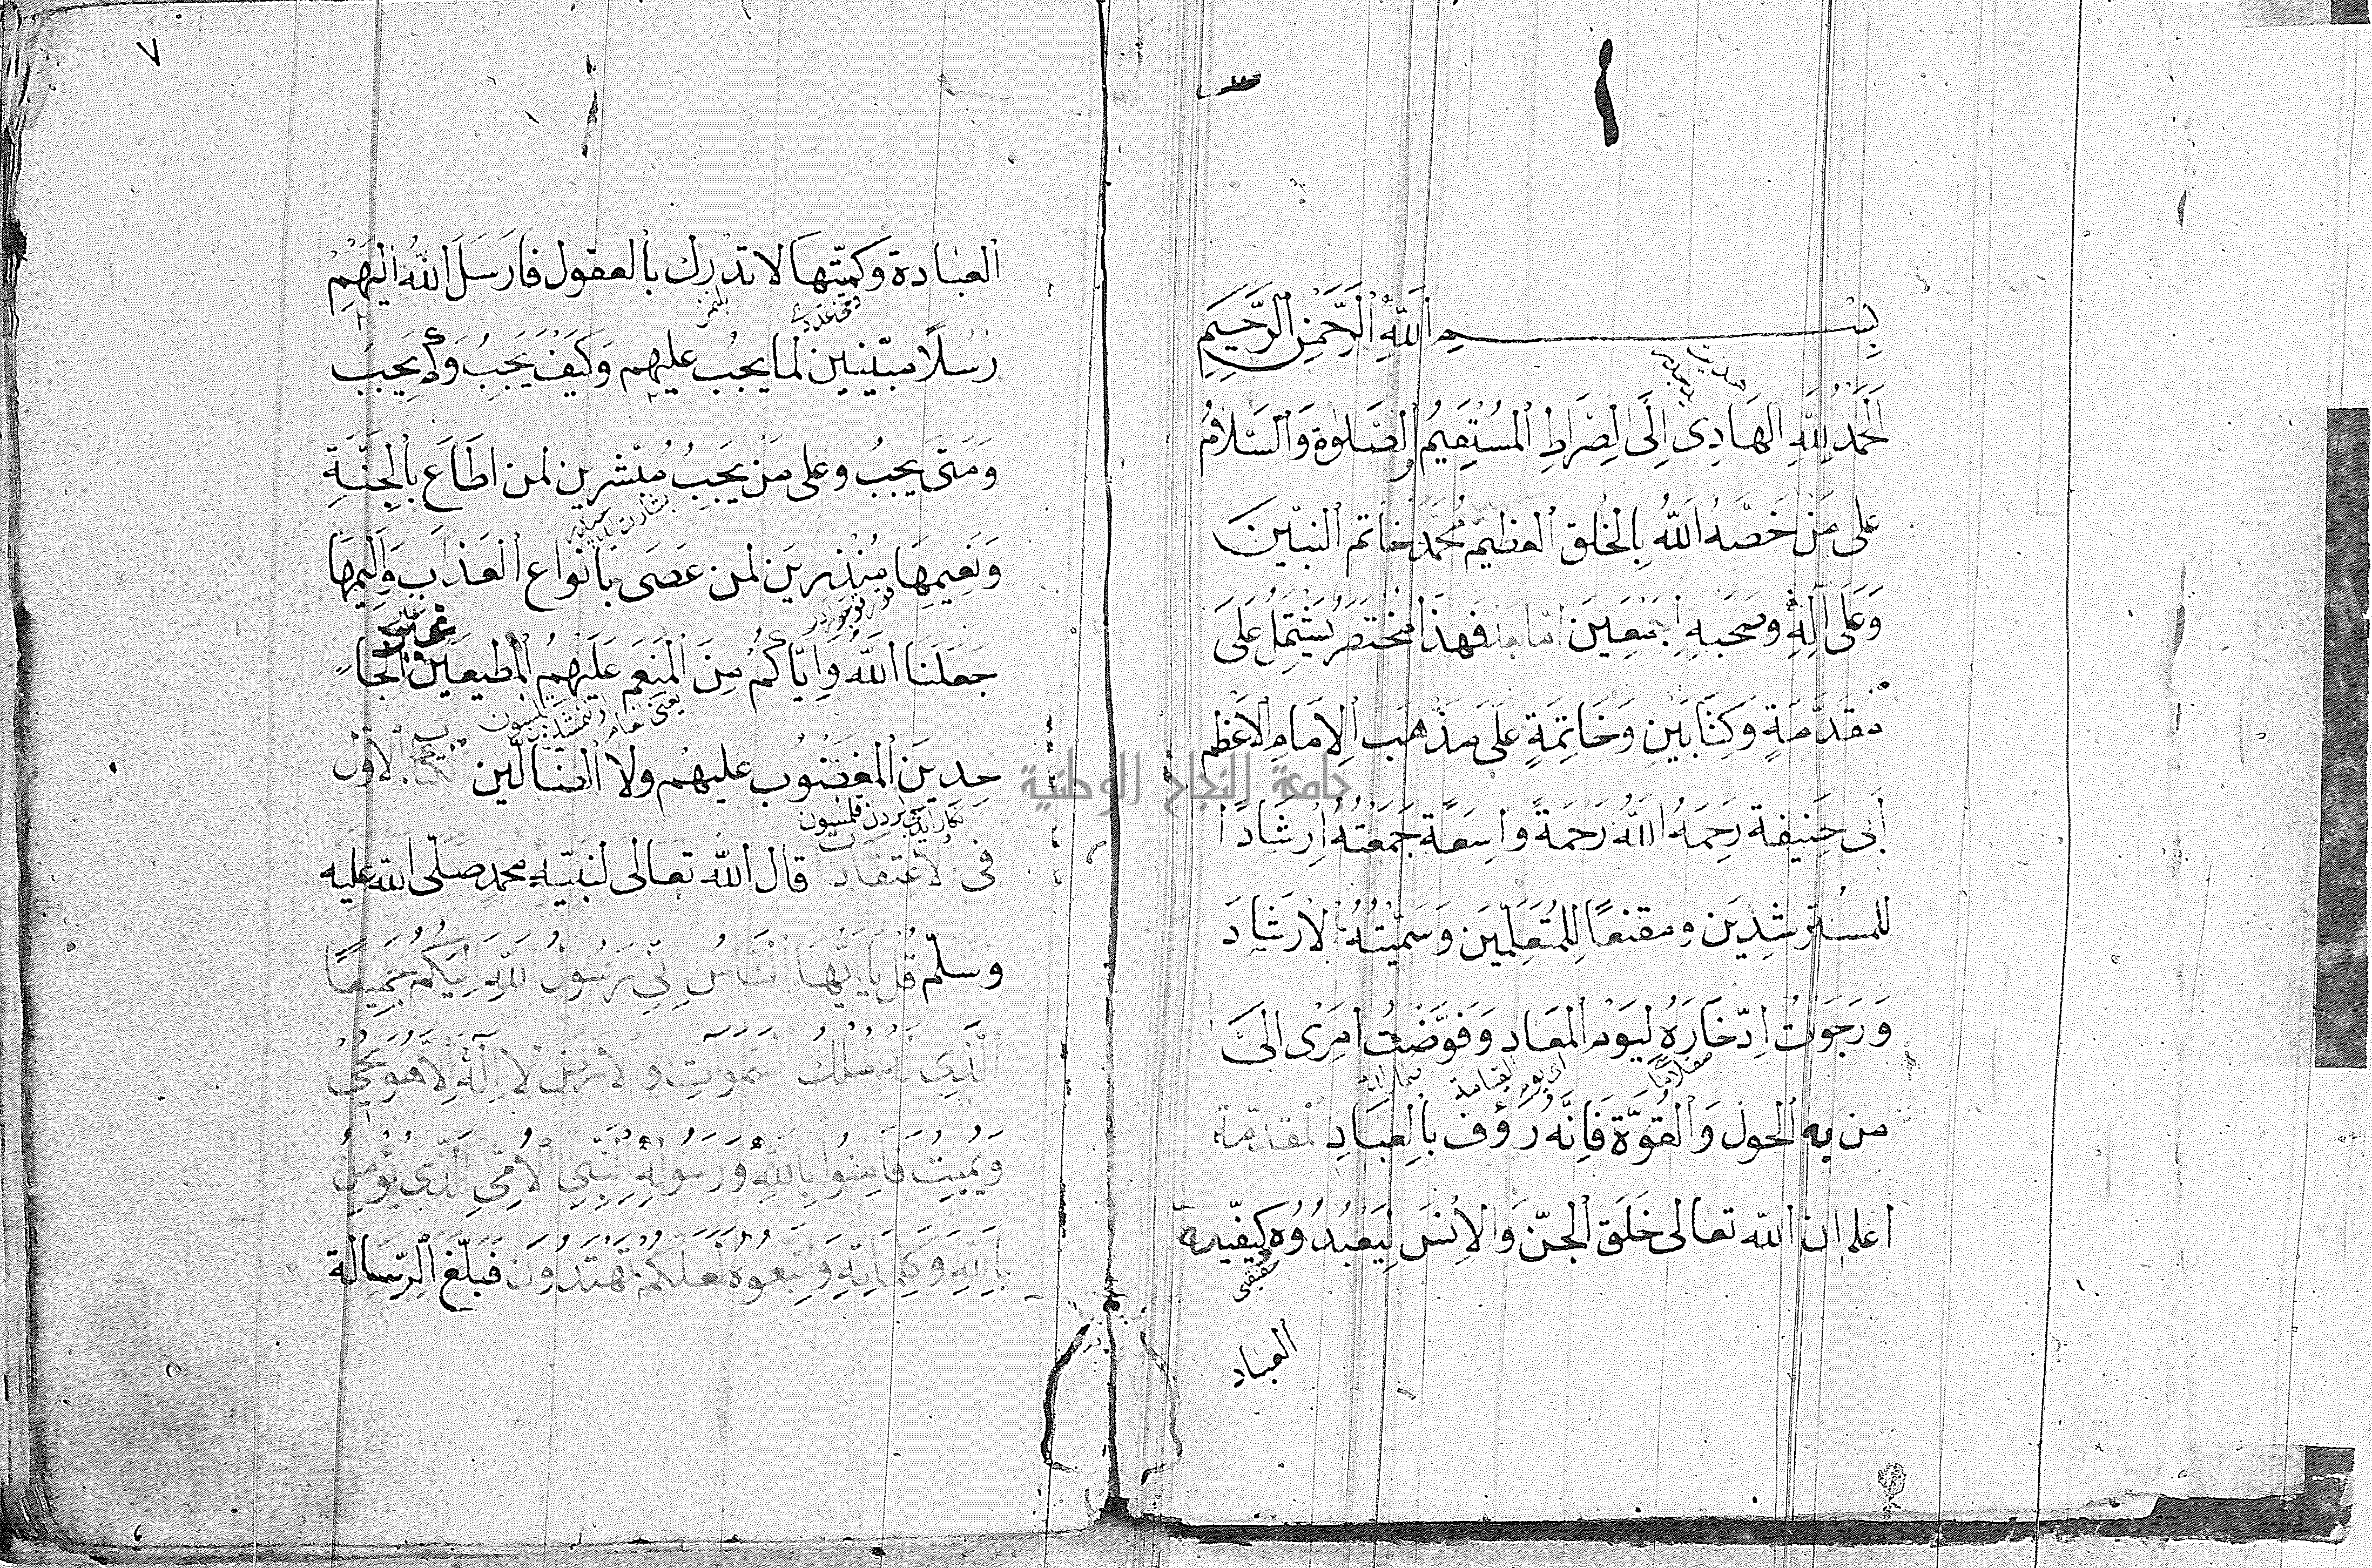 بِسْمِ اللَّهِ الرَّحْمٰنِ الرَّحِيمِ
اَلْحَمْدُ لِلَّهِ الْهَادِى اِلَى الصِّرَاطِ الْمُسْتَقِيمِ والصَّلٰوةُ وَالسَّلَامُ
على مَنْ خَصَّهُ اللَّهُ بِالخُلق العظيم مُحَمَّد خَاتم النبيّينَ
وَعَلَى آلِهِ وصَحبهِ اَجْمَعِينَ امّا بعد فَهذَا مُخْتَصَرٌ يَشْتَمِلُ عَلَى
مُقَدَّمَةٍ وَكِتَابَيْنِ وَخَاتِمَةٍ عَلَى مَذْهَبِ الْاِمَامِ الْاَعْظَمِ
أَبى حَنِيفة رَحِمَهُ اللَّهُ رَحْمَةً وَاسِعَةً جَمَعْتُهُ اِرْشَادًا
للمسْتَرشِدِينَ ومقنعًا لِلْمُتَعَلِّمِينَ وَسَمَّيْتُهُ الْاِرْشَادَ
وَرَجَوْتُ اِدِّخَارَهُ لِيَوْمِ الْمَعَادِ وَفَوَّضْتُ اَمْرِى اِلىَ
اى يوم القيامة
مَن بِهِ الحول وَالْقُوَّةُ فَاِنَّهُ رَؤُفٌ بِالْعِبَادِ المقدّمة
اعلم ان الله تعالى خَلَقَ الْجِنَّ وَالْاِنْسَ لِيَعْبُدُوُه كيفيّة
العباد
جامعة النجاح الوطنية
٧
العبَادة وكميّتها لا تدْرك بالعقول فَاَرْسَلَ اللَّهُ اِلَيْهِمْ
رُسُلًا مبيّنين لما يجبُ عليهم وَكَيْفَ يَجِبُ وَكم يَجِبُ
وَمَتَى يجبُ وعلى مَنْ يَجِبُ مُبَشّرين لمن اطَاع بالجَنَّةِ
وَنَعِيمِهَا مُنْذِرِينَ لمن عَصَى بِاَنْوَاع الْعَذَابِ وَاَلِيمِهَا
جَعَلَنَا اللَّهُ وَاِيَّاكُمْ مِنَ الْمُنْعَمِ عَلَيْهِمُ الْمُطِيعِينَ غير الجا
حِدِينَ الْمَغْضُوبِ عليهم ولا الضالّين الكتاب الاوّل
فى الاعتقاد قال الله تعالى لنبيّهِ محمدٍ صَلّى الله عليه
وَسلّم قُلْ يَا اَيُّهَا النَّاسُ اِنِّى رَسُولُ اللَّهِ اِلَيْكُمْ جَمِيعًا
الَّذِى لَهُ مُلْكُ السَّمٰوَاتِ وَالْاَرْضِ لَا اِلٰهَ اِلَّا هُوَ يُحْيِى
وَيُمِيتُ فَآمِنُوا بِاللَّهِ وَرَسُولِهِ النَّبِىِّ الْاُمِّىِّ الَّذِى يُؤْمِنُ
بِاللَّهِ وَكَلِمَاتِهِ وَاتَّبِعُوهُ لَعَلَّكُمْ تَهْتَدُونَ فَبَلَّغَ الرِّسَالَة